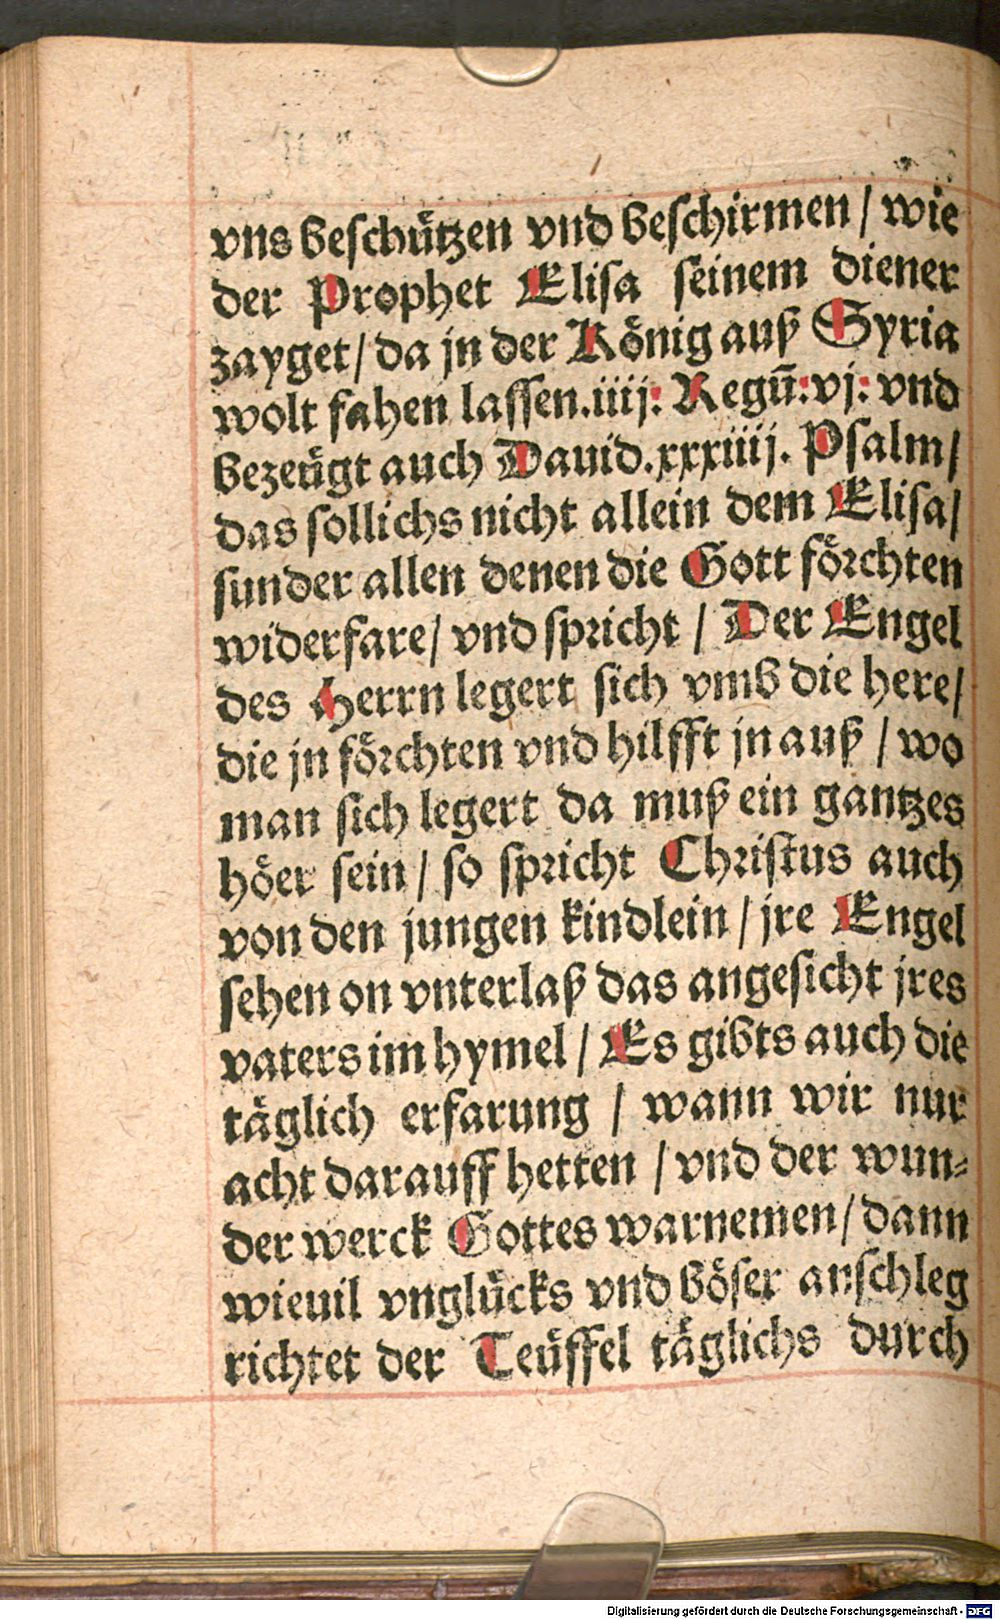 vns beſchützen vnd beſchirmen / wie
der Prophet Eliſa ſeinem diener
zayget / da jn der König auß Syria
wolt fahen laſſen .iiij: Regū: vj: vnd
bezeügt auch Dauid .xxxiiij. Pſalm /
das ſollichs nicht allein dem Eliſa /
ſunder allen denen die Gott förchten
widerfare / vnd ſpricht / Der Engel
des Herrn legert ſich vmb die here /
die jn förchten vnd hilfft jn auß / wo
man ſich legert da muß ein gantzes
höer ſein / ſo ſpricht Chriſtus auch
von den jungen kindlein / jre Engel
ſehen on vnterlaß das angeſicht jres
vaters im hymel / Es gibts auch die
täglich erfarung / wann wir nur
acht darauff hetten / vnd der wun⸗
der werck Gottes warnemen / dann
wieuil vnglücks vnd böſer anſchleg
richtet der Teüffel täglichs durch
Digitalisierung gefördert durch die Deutsche Forschungsgemeinschaft - DFG